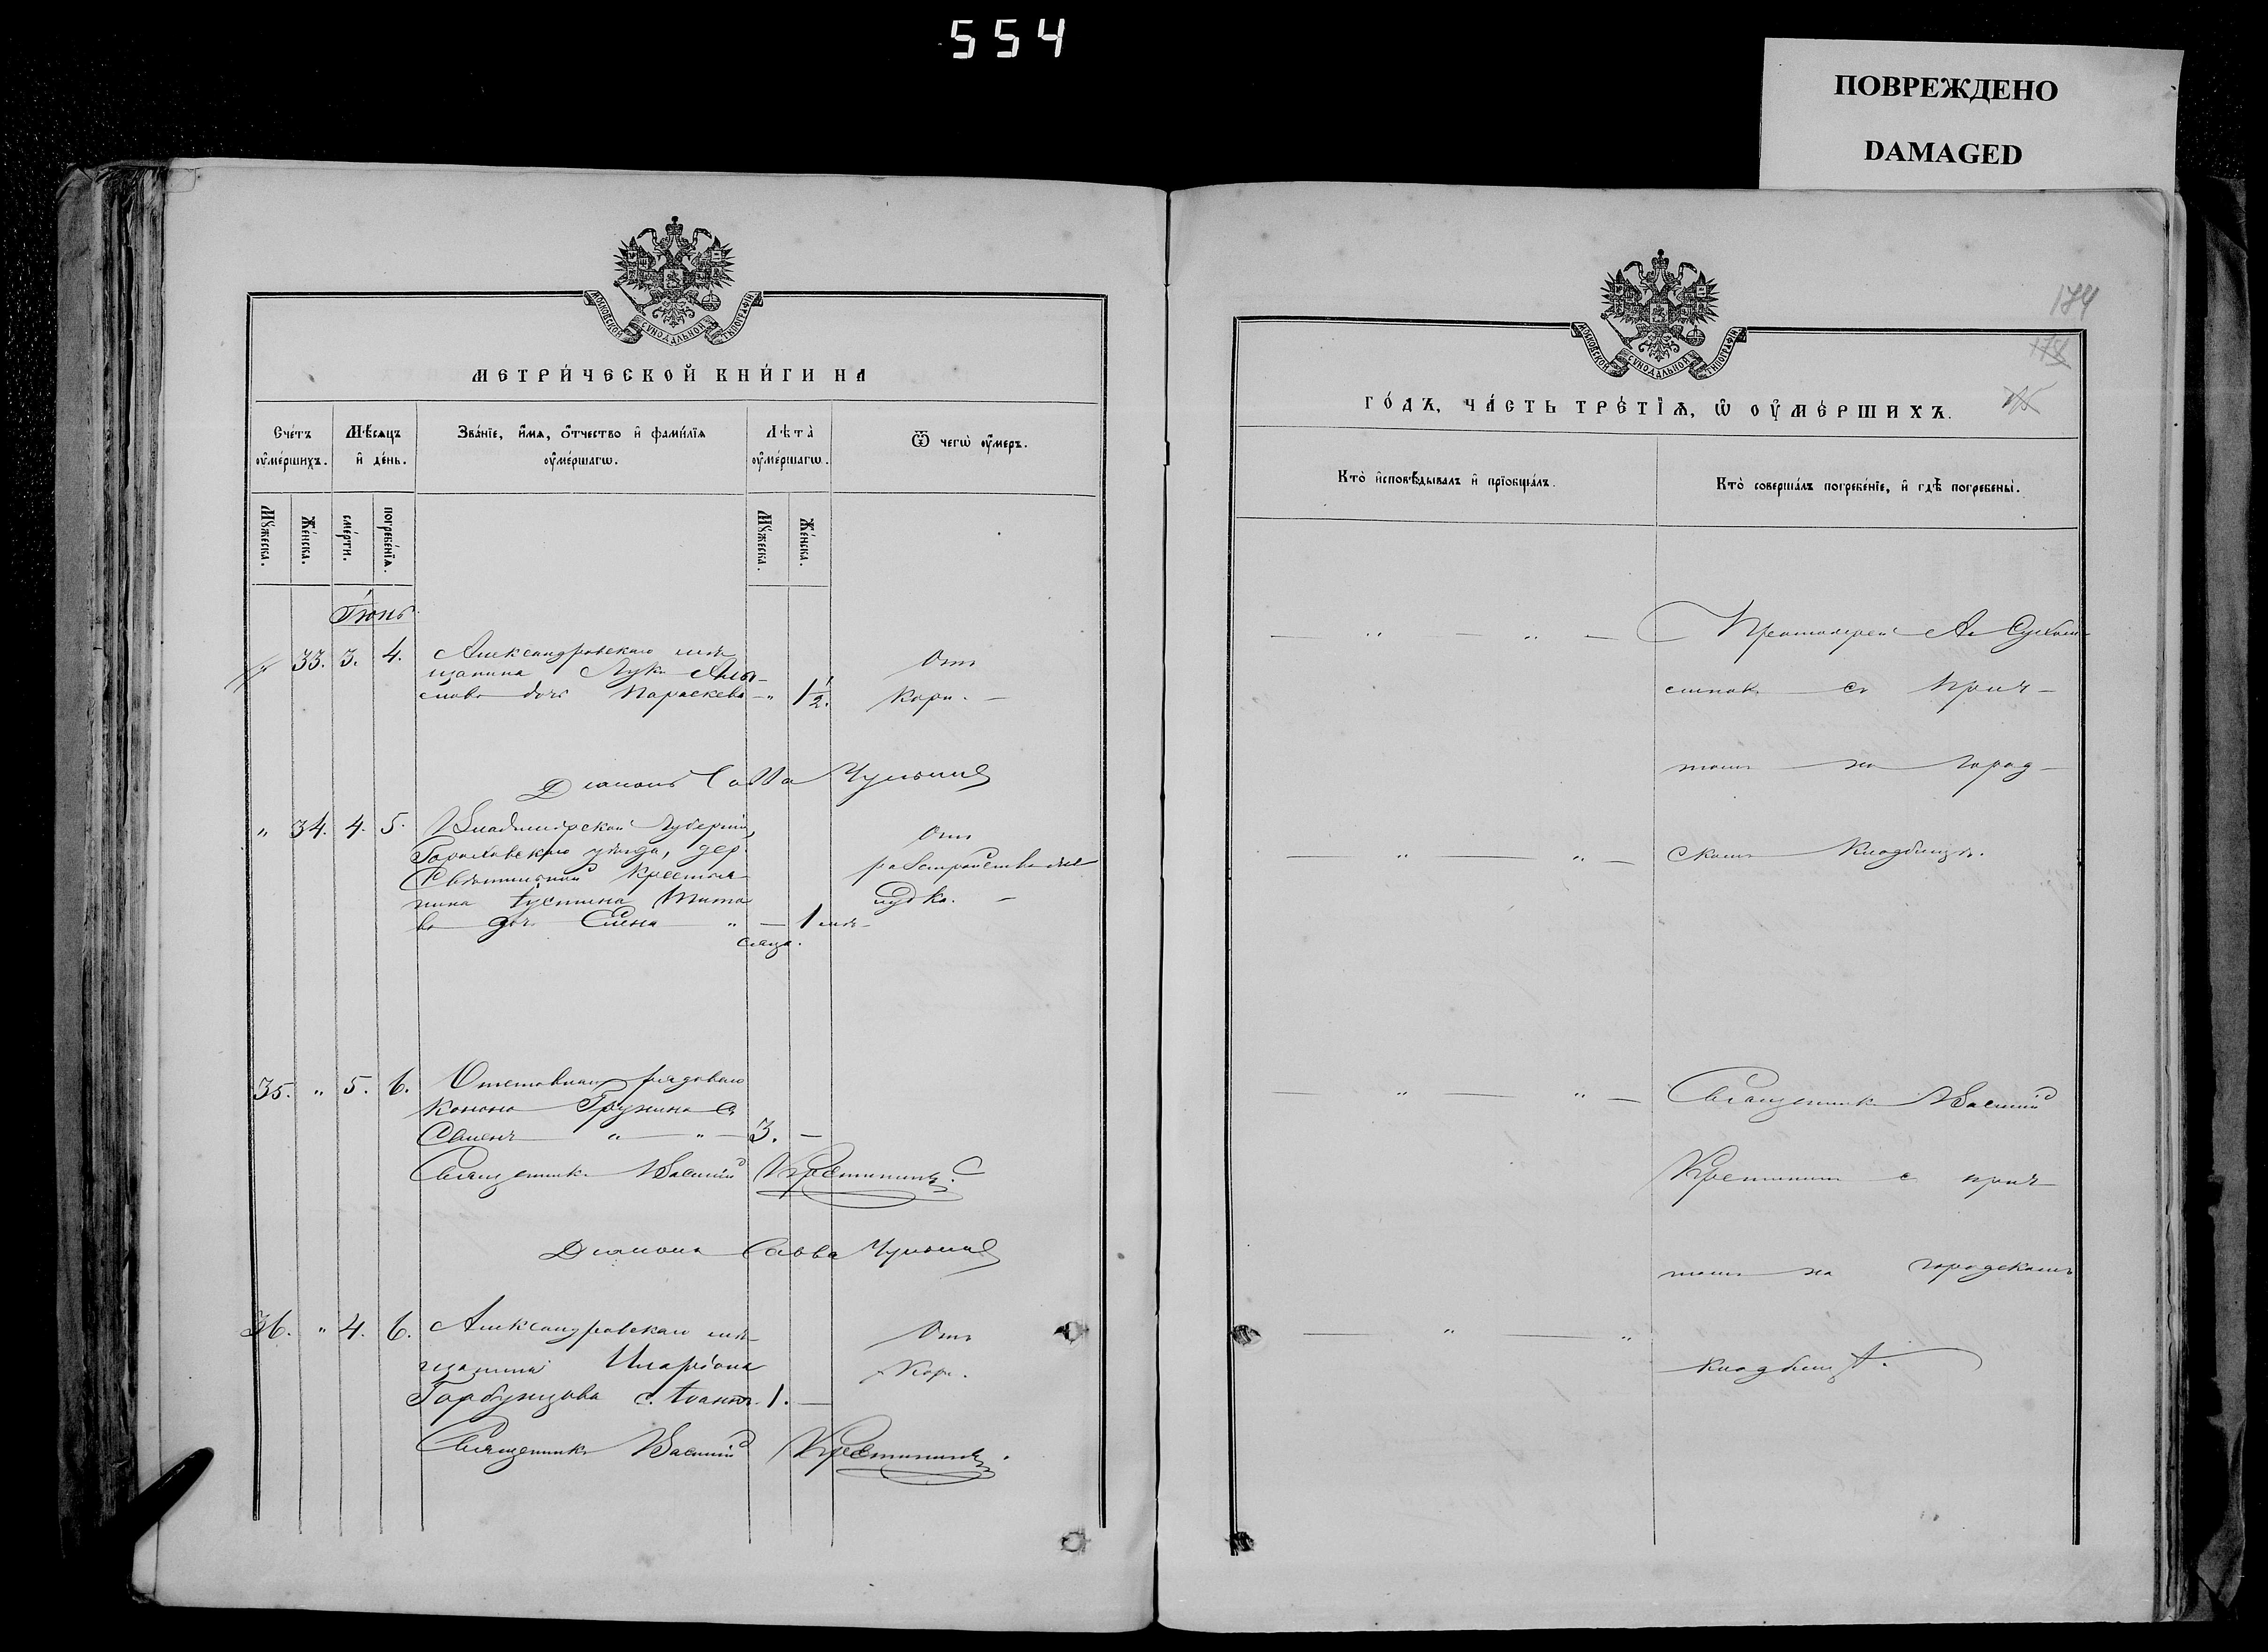 554
ПОВРЕЖДЕНО
DAMAGED
МОСКОВСКОЙ СУНОДАЛЬНОЙ ТИПОГРАФІИ
МЕТРИ́ЧЕСКОЙ КНИ́ГИ НА
Сче́тъ оу҆ме́ршихъ.
Мѣ́сяцъ и҆ де́нь.
Зва́нїе, и҆́мѧ, ѻ҆́тчество и҆ фами́лїѧ оу҆ме́ршагѡ.
Лѣта̀ оу҆ме́ршагѡ.
Ѿ чегѡ̀ оу҆́меръ.
Мꙋ́жеска.
Же́нска.
сме́рти.
погребе́нїѧ.
Мꙋ́жеска.
Же́нска.
Іюнь
" 33. 3. 4. Александровскаго мѣ-
щанина Луки
дочь Параскева — " 1 1/2.
Отъ
Кори. —
Діаконъ Савва
" 34. 4. 5. Владимірской губерніи,
Гороховскаго уѣзда, дер.
крестья-
нина Іустина Тито-
ва дочь Елена " — 1 мѣ-
сяца.
Отъ
разстройства же-
лудка. —
35. " 5. 6. Отставнаго рядоваго
Конона Грузина с.
Семенъ — " — " — 3. —
Священникъ Василій Крестининъ.
Діаконъ Савва
36. " 4. 6. Александровскаго мѣ-
щанина Иларіона
Горбунцова с. Іоаннъ. 1. —
Отъ
Кори.
Священникъ Василій Крестининъ.
174
МОСКОВСКОЙ СУНОДАЛЬНОЙ ТИПОГРАФІИ
ГО́ДЪ, ЧА́СТЬ ТРЕ́ТЇѦ, Ѡ҆ ОУ҆МЕ́РШИХЪ.
Кто̀ и҆сповѣ́дывалъ и҆ прїѡбща́лъ.
Кто̀ соверша́лъ погребе́нїе, и҆ гдѣ̀ погребены̀.
Протоіерей
съ прич-
томъ на город-
скомъ кладбищѣ.
Священникъ Василій
Крестининъ с прич-
томъ на городскомъ
кладбищѣ.